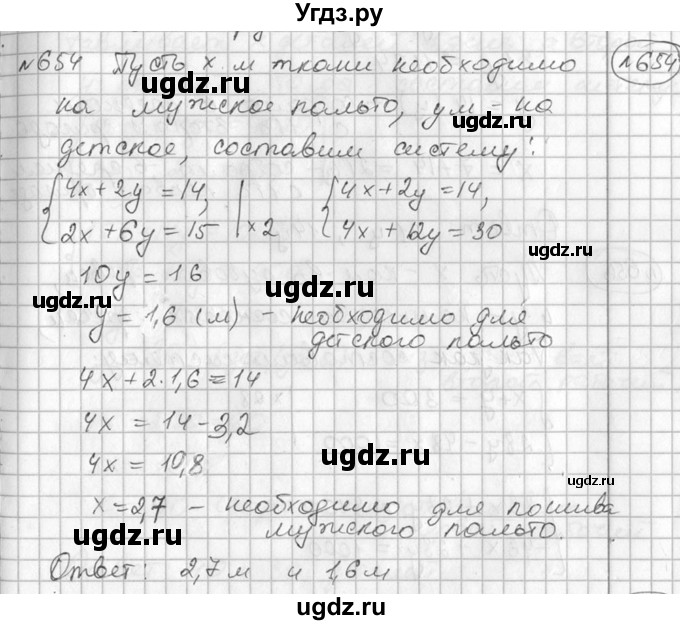 Угдз.ру
№654 Пусть х м ткани необходимо
№654
ugdz.ru
ugdz.ru
на мужское пальто, у м - на
ugdz.ru
детское, составим систему:
{4x + 2y = 14, {4x + 2y = 14,
{2x + 6y = 15 | ×2 {4x + 12y = 30
10y = 16
ugdz.ru
ugdz.ru
y = 1,6 (м) - необходимо для
детского пальто
4x + 2·1,6 = 14
4x = 14 - 3,2
ugdz.ru
ugdz.ru
4x = 10,8
x = 2,7 - необходимо для пошива
ugdz.ru
мужского пальто.
ugdz.ru
Ответ: 2,7 м и 1,6 м
ugdz.ru
ugdz.ru